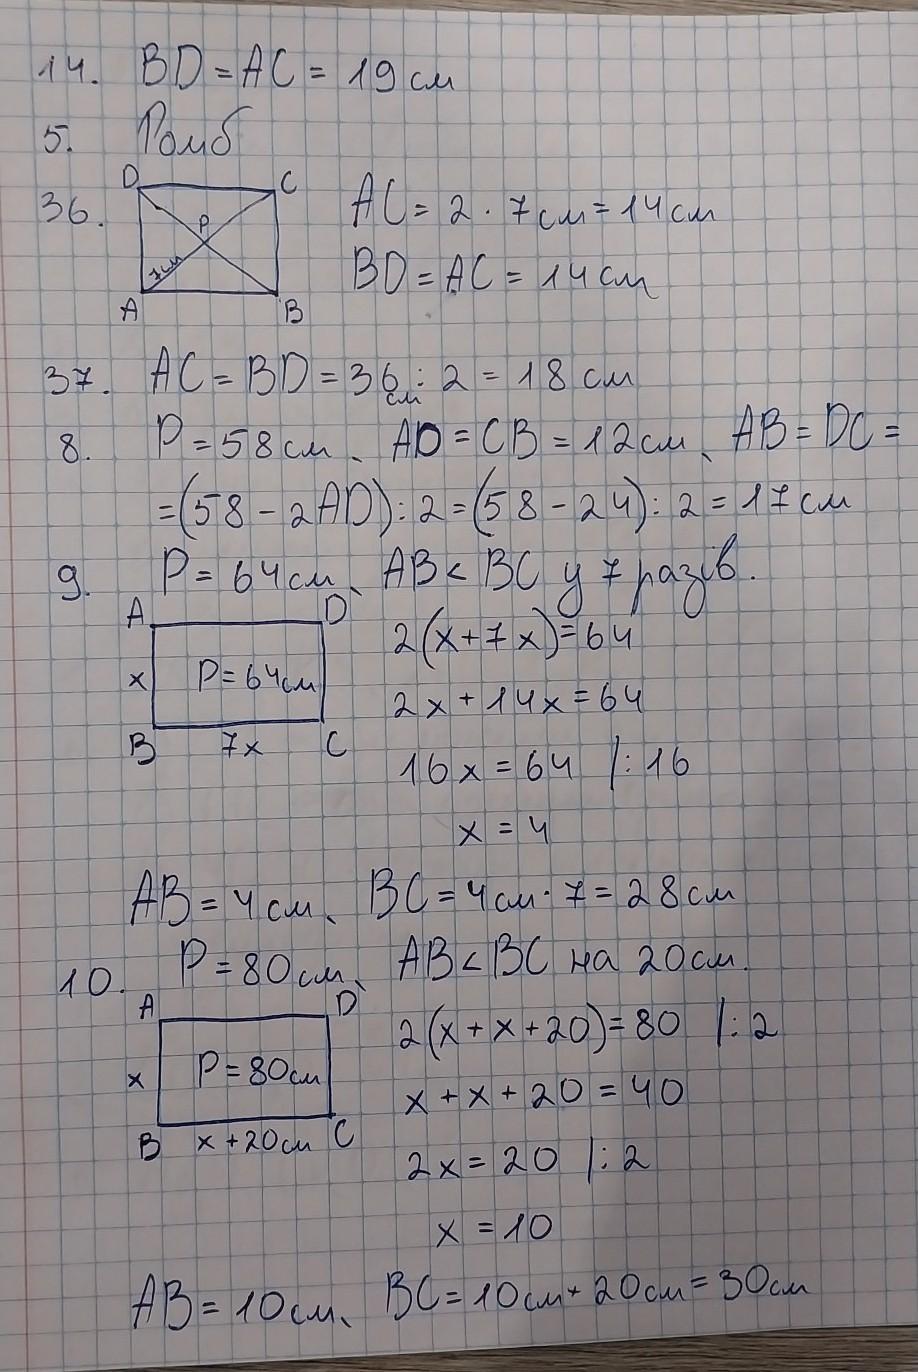 14. BD = AC = 19 см
5. Ромб
36. D C P 7см A B
AC = 2 · 7см = 14 см
BD = AC = 14 см
37. AC = BD = 36 см : 2 = 18 см
8. P = 58 см, AD = CB = 12 см, AB = DC =
= (58 - 2AD) : 2 = (58 - 24) : 2 = 17 см
9. P = 64 см, AB < BC у 7 разів.
A D
x P = 64см
B 7x C
2(x + 7x) = 64
2x + 14x = 64
16x = 64 | : 16
x = 4
AB = 4 см, BC = 4 см · 7 = 28 см
10. P = 80 см, AB < BC на 20 см.
A D
x P = 80см
B x + 20см C
2(x + x + 20) = 80 | : 2
x + x + 20 = 40
2x = 20 | : 2
x = 10
AB = 10 см, BC = 10 см + 20 см = 30 см